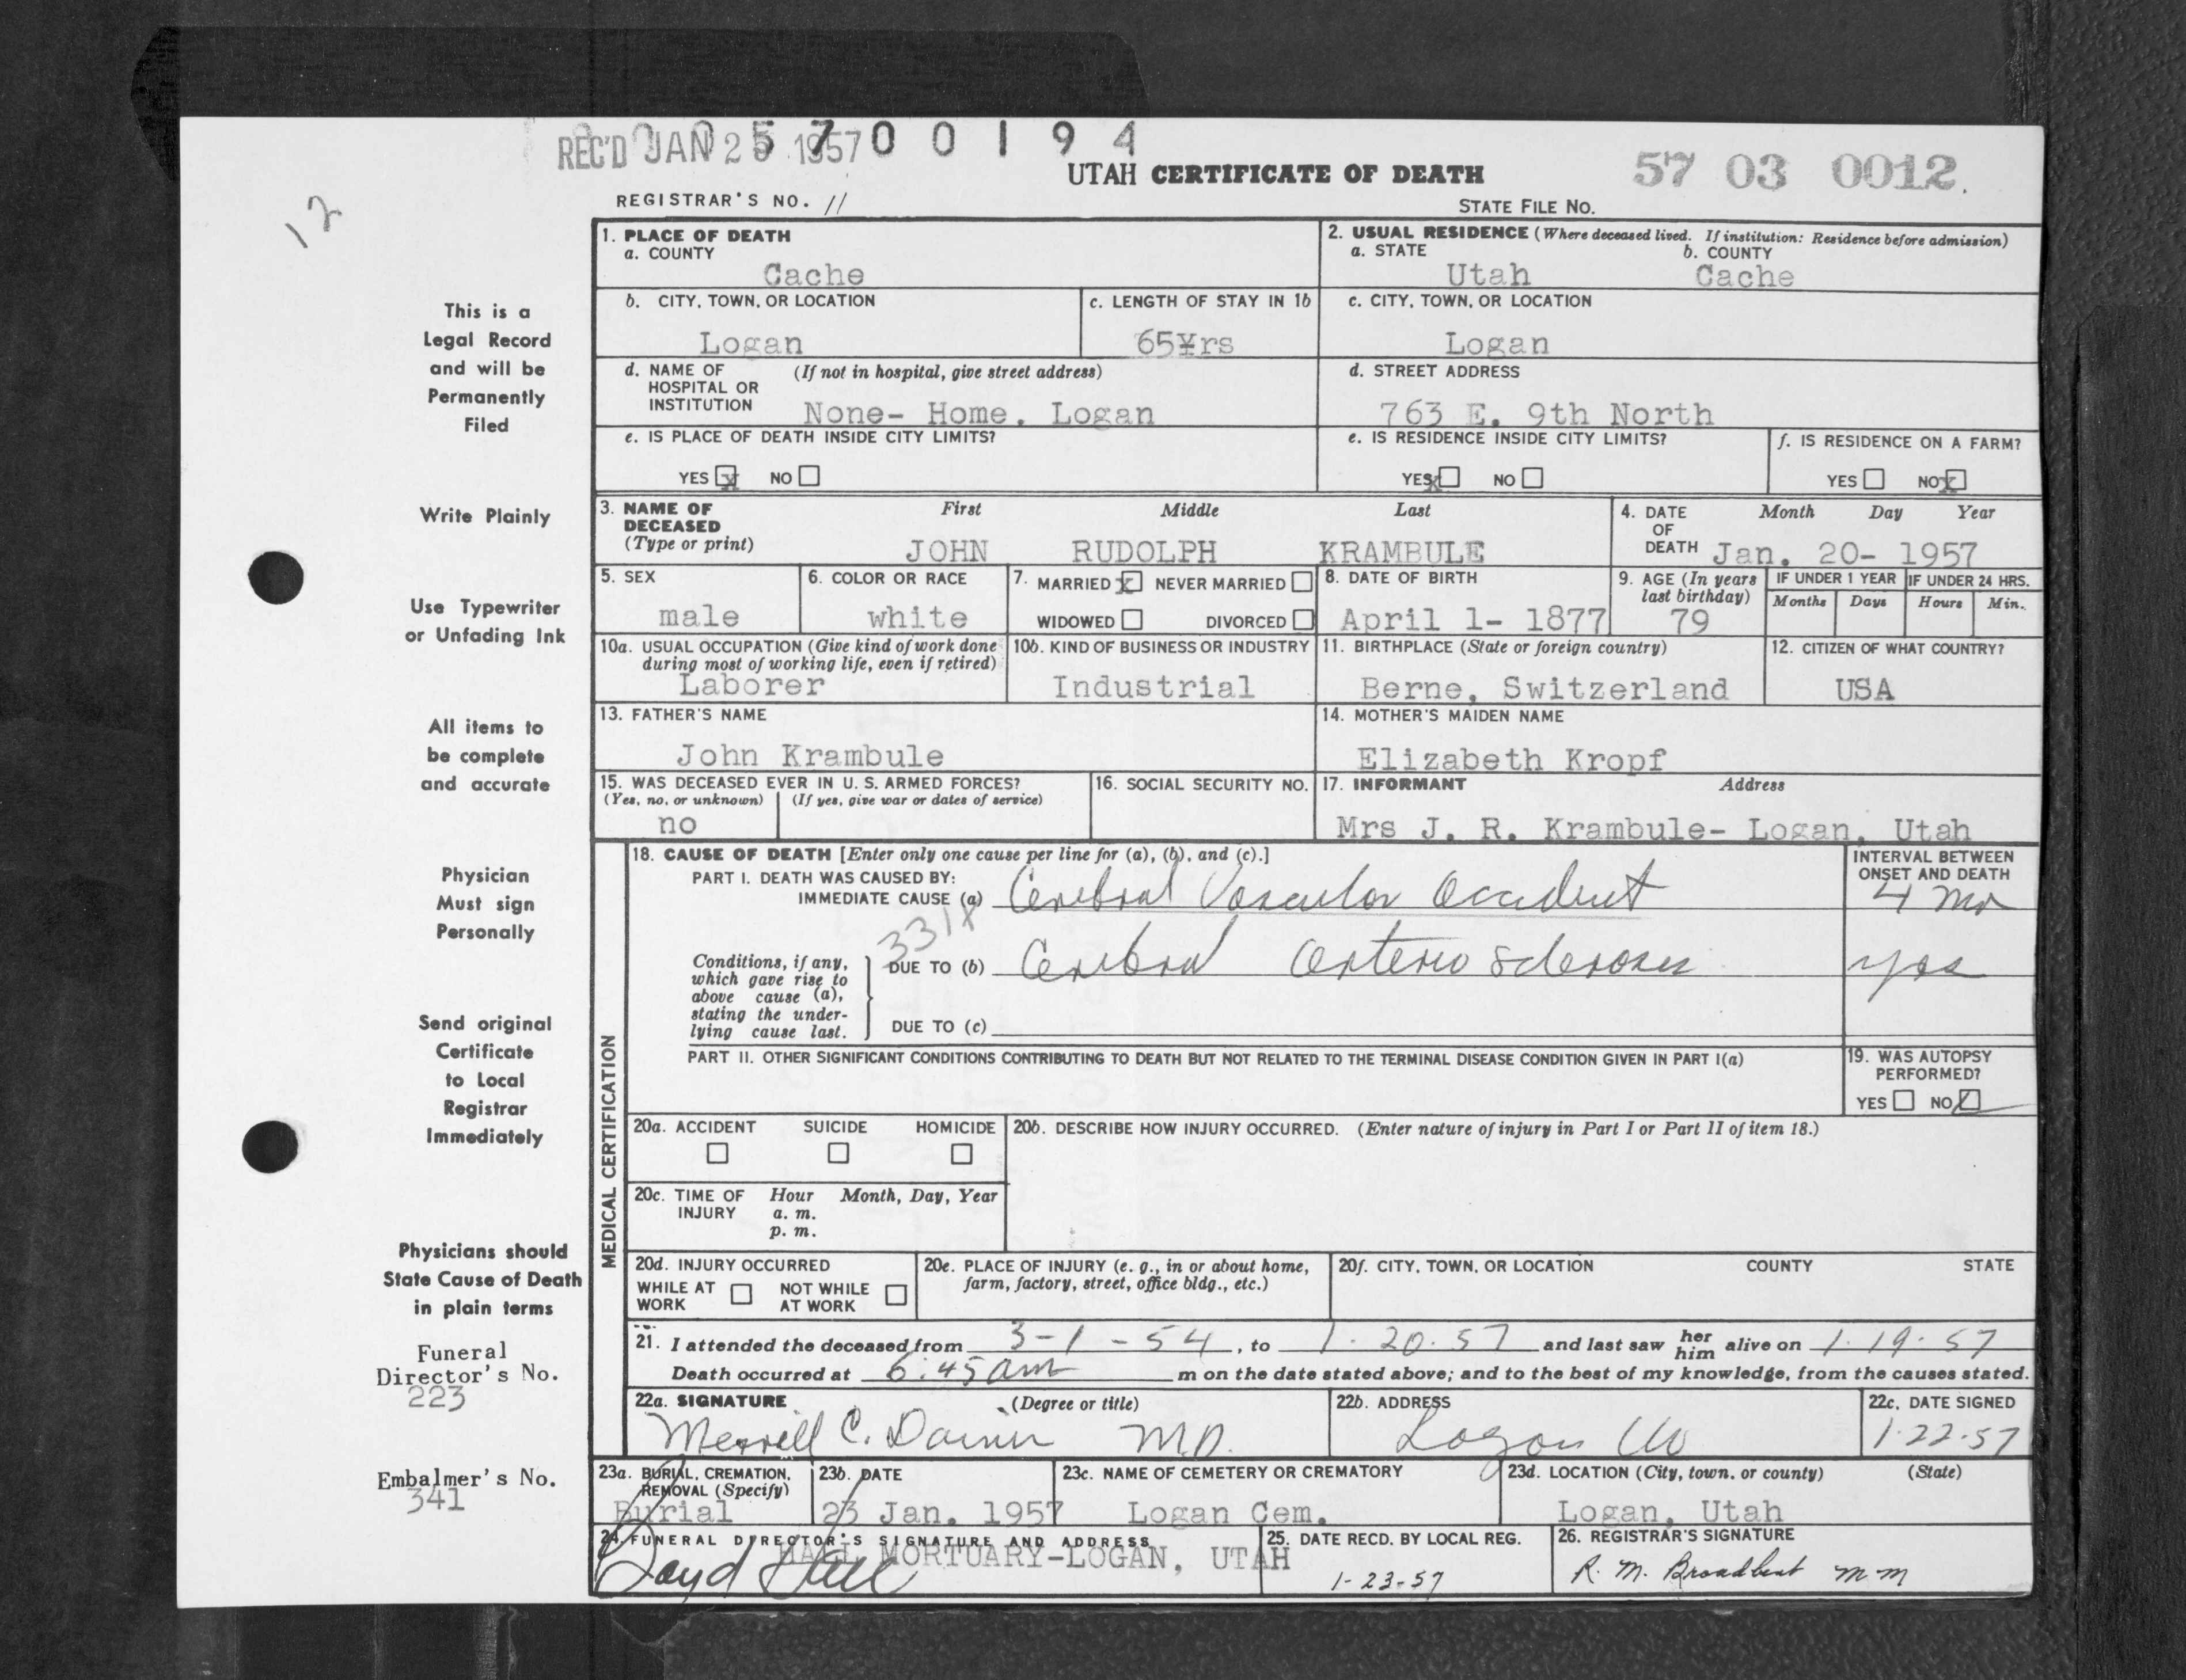 REC'D JAN 25 1957
5 7 0 0 1 9 4
UTAH CERTIFICATE OF DEATH
57 03 0012
12
REGISTRAR'S NO. 11
STATE FILE NO.
This is a
Legal Record
and will be
Permanently
Filed
Write Plainly
Use Typewriter
or Unfading Ink
All items to
be complete
and accurate
Physician
Must sign
Personally
Send original
Certificate
to Local
Registrar
Immediately
Physicians should
State Cause of Death
in plain terms
Funeral
Director's No.
223
Embalmer's No.
341
1. PLACE OF DEATH
a. COUNTY
Cache
2. USUAL RESIDENCE (Where deceased lived. If institution: Residence before admission)
a. STATE b. COUNTY
Utah Cache
b. CITY, TOWN, OR LOCATION
Logan
c. LENGTH OF STAY IN 1b
65Yrs
c. CITY, TOWN, OR LOCATION
Logan
d. NAME OF (If not in hospital, give street address)
HOSPITAL OR
INSTITUTION None- Home. Logan
d. STREET ADDRESS
763 E. 9th North
e. IS PLACE OF DEATH INSIDE CITY LIMITS?
YES X NO
e. IS RESIDENCE INSIDE CITY LIMITS?
YES X NO
f. IS RESIDENCE ON A FARM?
YES NO X
3. NAME OF First Middle Last
DECEASED
(Type or print) JOHN RUDOLPH KRAMBULE
4. DATE Month Day Year
OF
DEATH Jan. 20- 1957
5. SEX
male
6. COLOR OR RACE
white
7. MARRIED X NEVER MARRIED
WIDOWED DIVORCED
8. DATE OF BIRTH
April 1- 1877
9. AGE (In years
last birthday)
79
IF UNDER 1 YEAR IF UNDER 24 HRS.
Months Days Hours Min.
10a. USUAL OCCUPATION (Give kind of work done
during most of working life, even if retired)
Laborer
10b. KIND OF BUSINESS OR INDUSTRY
Industrial
11. BIRTHPLACE (State or foreign country)
Berne, Switzerland
12. CITIZEN OF WHAT COUNTRY?
USA
13. FATHER'S NAME
John Krambule
14. MOTHER'S MAIDEN NAME
Elizabeth Kropf
15. WAS DECEASED EVER IN U. S. ARMED FORCES?
(Yes, no, or unknown) (If yes, give war or dates of service)
no
16. SOCIAL SECURITY NO.
17. INFORMANT Address
Mrs J. R. Krambule- Logan, Utah
MEDICAL CERTIFICATION
18. CAUSE OF DEATH [Enter only one cause per line for (a), (b), and (c).]
PART I. DEATH WAS CAUSED BY:
IMMEDIATE CAUSE (a) Cerebral Vascular Accident
INTERVAL BETWEEN
ONSET AND DEATH
4 mo
331X
Conditions, if any,
which gave rise to
above cause (a),
stating the under-
lying cause last.
DUE TO (b) Cerebral arterio sclerosis
yrs
DUE TO (c)
PART II. OTHER SIGNIFICANT CONDITIONS CONTRIBUTING TO DEATH BUT NOT RELATED TO THE TERMINAL DISEASE CONDITION GIVEN IN PART I(a)
19. WAS AUTOPSY
PERFORMED?
YES NO
20a. ACCIDENT SUICIDE HOMICIDE
20b. DESCRIBE HOW INJURY OCCURRED. (Enter nature of injury in Part I or Part II of item 18.)
20c. TIME OF Hour Month, Day, Year
INJURY a. m.
p. m.
20d. INJURY OCCURRED
WHILE AT NOT WHILE
WORK AT WORK
20e. PLACE OF INJURY (e. g., in or about home,
farm, factory, street, office bldg., etc.)
20f. CITY, TOWN, OR LOCATION COUNTY STATE
21. I attended the deceased from 3-1-54, to 1-20-57 and last saw her him alive on 1-19-57
Death occurred at 6:45 am m on the date stated above; and to the best of my knowledge, from the causes stated.
22a. SIGNATURE (Degree or title)
Merrill C. Daines M.D.
22b. ADDRESS
Logan Ut
22c. DATE SIGNED
1-22-57
23a. BURIAL, CREMATION,
REMOVAL (Specify)
Burial
23b. DATE
23 Jan. 1957
23c. NAME OF CEMETERY OR CREMATORY
Logan Cem.
23d. LOCATION (City, town, or county) (State)
Logan, Utah
24. FUNERAL DIRECTOR'S SIGNATURE AND ADDRESS
HALL MORTUARY-LOGAN, UTAH
Loyd Hall
25. DATE RECD. BY LOCAL REG.
1-23-57
26. REGISTRAR'S SIGNATURE
R. M. Broadbent mm